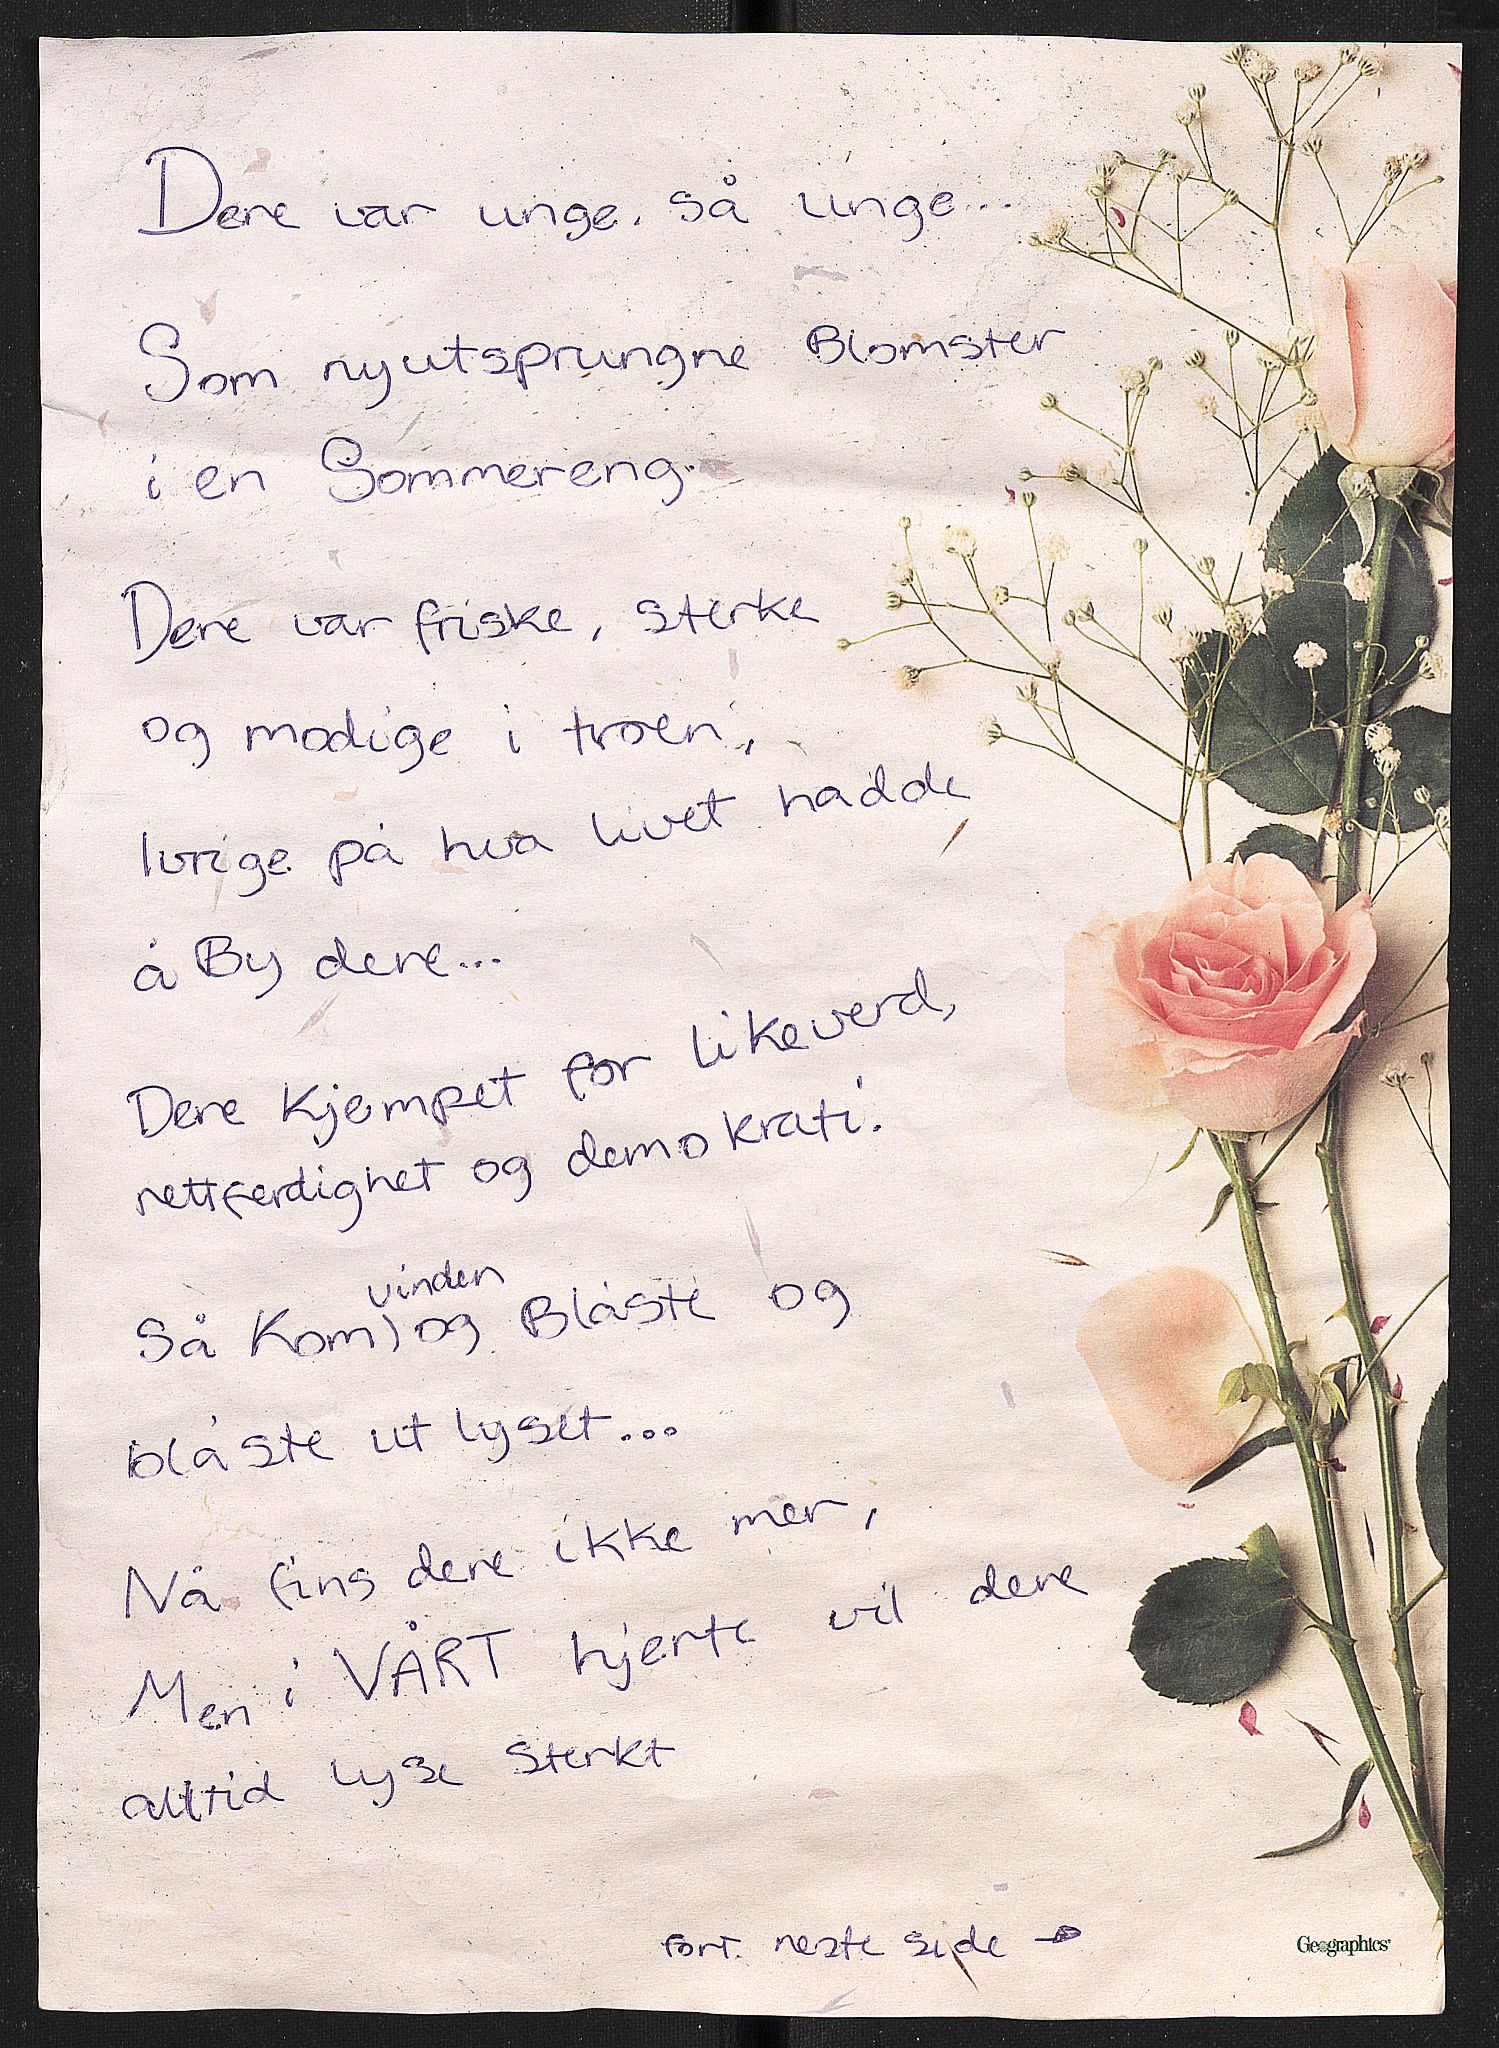 Dere var unge. så unge...
Som nyutsprungne Blomster
i en Sommereng.
Dere var friske, sterke
og modige i troen,
Ivrige på hva livet hadde
å By dere...
Dere Kjempet for likeverd,
rettferdighet og demokrati.
vinden
Så Kom) og Blåste og
blåste ut lyset...
Nå fins dere ikke mer,
Men i VÅRT hjerte vil dere
alltid lyse sterkt
fort. neste side →
Geographics®